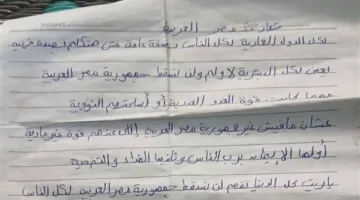 مصر العربية
لكل الدول العادية لكل الناس بصفة عامة مش هتكلم بصفة حربية
يعنى لكل البشرية لا ولم ولن تسقط جمهورية مصر العربية
مهما كانت قوة العدو أو أسلحتهم النووية
عشان مافيش غير جمهورية مصر العربية إللى عندهم قوة غير عادية
أولها الإيمان برب الناس وثانيها الفداء والتضحية
ياريت كل الدنيا تفهم لن تسقط جمهورية مصر العربية لكل الناس